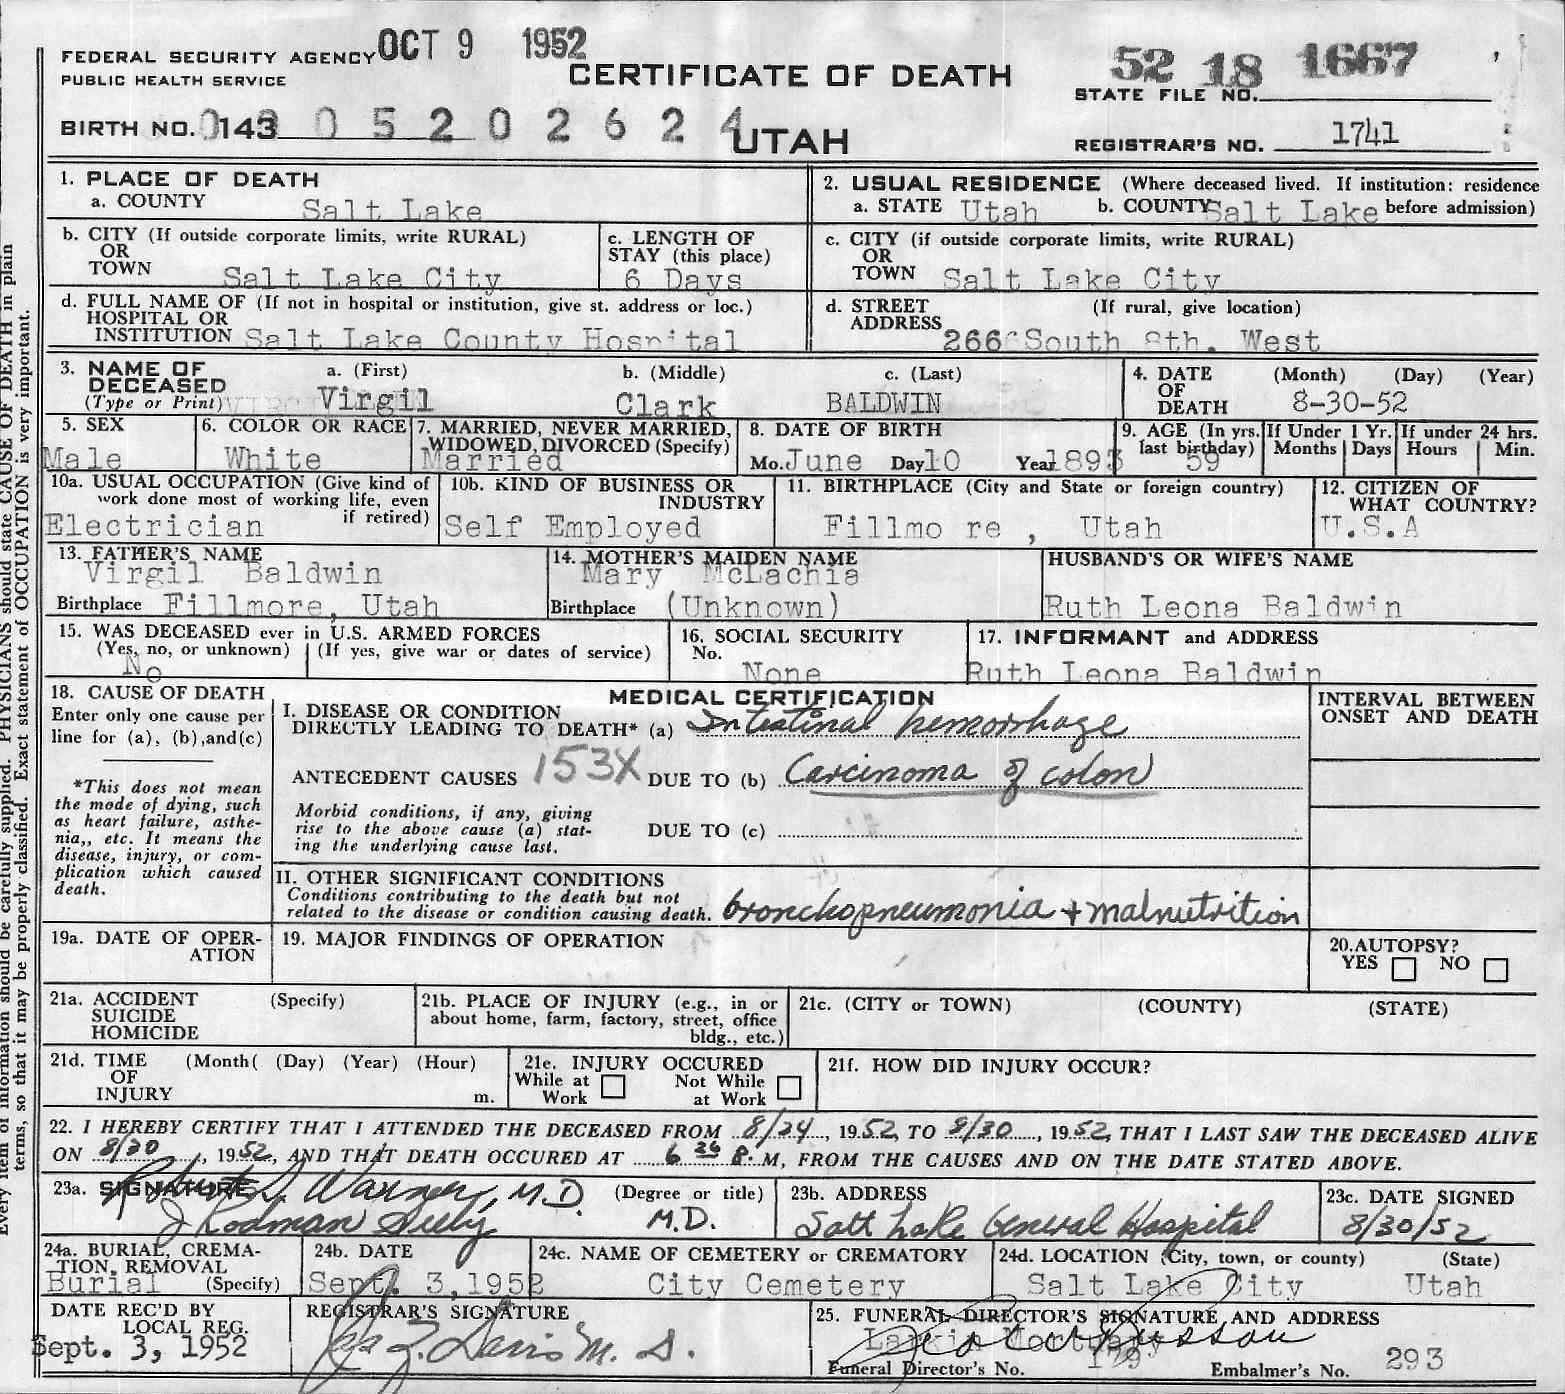 OCT 9 1952
FEDERAL SECURITY AGENCY
PUBLIC HEALTH SERVICE
CERTIFICATE OF DEATH
52 18 1667
STATE FILE NO.
BIRTH NO. 0143 0 5 2 0 2 6 2 4
UTAH
REGISTRAR'S NO. 1741
1. PLACE OF DEATH
a. COUNTY Salt Lake
2. USUAL RESIDENCE (Where deceased lived. If institution: residence before admission)
a. STATE Utah b. COUNTY Salt Lake
b. CITY (If outside corporate limits, write RURAL)
OR
TOWN Salt Lake City
c. LENGTH OF
STAY (this place)
6 Days
c. CITY (if outside corporate limits, write RURAL)
OR
TOWN Salt Lake City
d. FULL NAME OF (If not in hospital or institution, give st. address or loc.)
HOSPITAL OR
INSTITUTION Salt Lake County Hospital
d. STREET (If rural, give location)
ADDRESS South 8th. West
3. NAME OF
DECEASED
(Type or Print)
a. (First) b. (Middle) c. (Last)
Virgil Clark BALDWIN
4. DATE (Month) (Day) (Year)
OF
DEATH 8-30-52
5. SEX
Male
6. COLOR OR RACE
White
7. MARRIED, NEVER MARRIED,
WIDOWED, DIVORCED (Specify)
Married
8. DATE OF BIRTH
Mo. June Day 10 Year 1893
9. AGE (In yrs. last birthday) 59
If Under 1 Yr. Months Days
If under 24 hrs. Hours Min.
10a. USUAL OCCUPATION (Give kind of
work done most of working life, even
if retired)
Electrician
10b. KIND OF BUSINESS OR
INDUSTRY
Self Employed
11. BIRTHPLACE (City and State or foreign country)
Fillmo re , Utah
12. CITIZEN OF
WHAT COUNTRY?
U.S.A
13. FATHER'S NAME
Virgil Baldwin
Birthplace Fillmore, Utah
14. MOTHER'S MAIDEN NAME
Mary McLachia
Birthplace (Unknown)
HUSBAND'S OR WIFE'S NAME
Ruth Leona Baldwin
15. WAS DECEASED ever in U.S. ARMED FORCES
(Yes, no, or unknown) (If yes, give war or dates of service)
No
16. SOCIAL SECURITY
No.
None
17. INFORMANT and ADDRESS
Ruth Leona Baldwin
18. CAUSE OF DEATH
Enter only one cause per
line for (a), (b), and(c)
*This does not mean
the mode of dying, such
as heart failure, asthe-
nia,, etc. It means the
disease, injury, or com-
plication which caused
death.
MEDICAL CERTIFICATION
INTERVAL BETWEEN
ONSET AND DEATH
I. DISEASE OR CONDITION
DIRECTLY LEADING TO DEATH* (a) Intestinal hemorrhage
ANTECEDENT CAUSES 153X DUE TO (b) Carcinoma of colon
Morbid conditions, if any, giving
rise to the above cause (a) stat-
ing the underlying cause last.
DUE TO (c)
II. OTHER SIGNIFICANT CONDITIONS
Conditions contributing to the death but not
related to the disease or condition causing death. bronchopneumonia + malnutrition
19a. DATE OF OPER-
ATION
19. MAJOR FINDINGS OF OPERATION
20. AUTOPSY?
YES NO
21a. ACCIDENT (Specify)
SUICIDE
HOMICIDE
21b. PLACE OF INJURY (e.g., in or
about home, farm, factory, street, office
bldg., etc.)
21c. (CITY or TOWN) (COUNTY) (STATE)
21d. TIME (Month( (Day) (Year) (Hour)
OF
INJURY m.
21e. INJURY OCCURED
While at Work Not While at Work
21f. HOW DID INJURY OCCUR?
22. I HEREBY CERTIFY THAT I ATTENDED THE DECEASED FROM 8/24, 1952, TO 8/30, 1952, THAT I LAST SAW THE DECEASED ALIVE
ON 8/30, 1952, AND THAT DEATH OCCURED AT 6 P. M, FROM THE CAUSES AND ON THE DATE STATED ABOVE.
23a. SIGNATURE (Degree or title)
Warner, M.D.
J Rodman Seely M.D.
23b. ADDRESS
Salt Lake General Hospital
23c. DATE SIGNED
8/30/52
24a. BURIAL, CREMA-
TION, REMOVAL
(Specify)
Burial
24b. DATE
Sept. 3, 1952
24c. NAME OF CEMETERY or CREMATORY
City Cemetery
24d. LOCATION (City, town, or county) (State)
Salt Lake City Utah
DATE REC'D BY
LOCAL REG.
Sept. 3, 1952
REGISTRAR'S SIGNATURE
25. FUNERAL DIRECTOR'S SIGNATURE AND ADDRESS
Larkin Mortuary
Funeral Director's No. Embalmer's No. 293
Every item of information should be carefully supplied. PHYSICIANS should state CAUSE OF DEATH in plain
terms, so that it may be properly classified. Exact statement of OCCUPATION is very important.